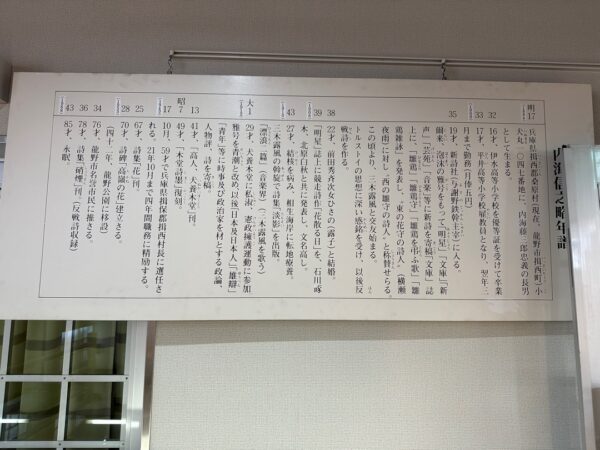 内海信之略年譜
明17 兵庫県揖西郡桑原村(現在、龍野市揖西町)小
犬丸一〇四七番地に、内海藤一郎忠義の長男
として生まる。
32 16才、伊水高等小学校を優等証を受けて卒業
33 17才、平井高等小学校雇教員となり、翌年三
月まで勤務(月俸五円)
35 19才、新詩社(与謝野鉄幹主宰)に入る。
爾来、泡沫の雅号をもって、「明星」「文庫」「新
声」「芸苑」「音楽」等に新詩を寄稿「文庫」誌
上に、「雛鶏」「雛鶏守」「雛鶏を弔ふ歌」「雛
鶏雑詠」を発表し、「東の花守の詩人」(横瀬
夜雨)に対し「西の雛守の詩人」と称賛せらる。
この頃より、三木露風と交友始まる。
トルストイの思想に深い感銘を受け、以後反
戦詩を作る。
38 22才、前田秀斉次女ひさの(露子)と結婚。
39 「明星」誌上に競走詩作「花散る日」を、石川啄
木、北原白秋と共に発表し、文名高し。
43 27才、結核を病み、相生海岸に転地療養。
三木露風の斡旋で詩集「淡影」を出版。
「漂浪一篇」(音楽界)(三木露風を歌う)
大1 29才、犬養木堂に私淑、憲政擁護運動に参加
雅号を青潮と改め以後「日本及日本人」、「雄辯」
「青年」等に時事及び政治家を材とする政論、
人物評、詩を寄稿。
13 41才、「高人 犬養木堂」刊。
昭7 49才、「木堂詩影」復刻。
17 10月、59才で兵庫県揖保郡揖西村長に選任さ
れる。21年10月まで四年間職務に精励する。
25 67才、詩集「花」刊。
28 70才、詩碑「高嶺の花」建立さる。
(四十一年、龍野公園に移設)
34 76才、龍野市名誉市民に推さる。
36 78才、詩集「硝煙」刊(反戦詩収録)
43 85才、永眠。